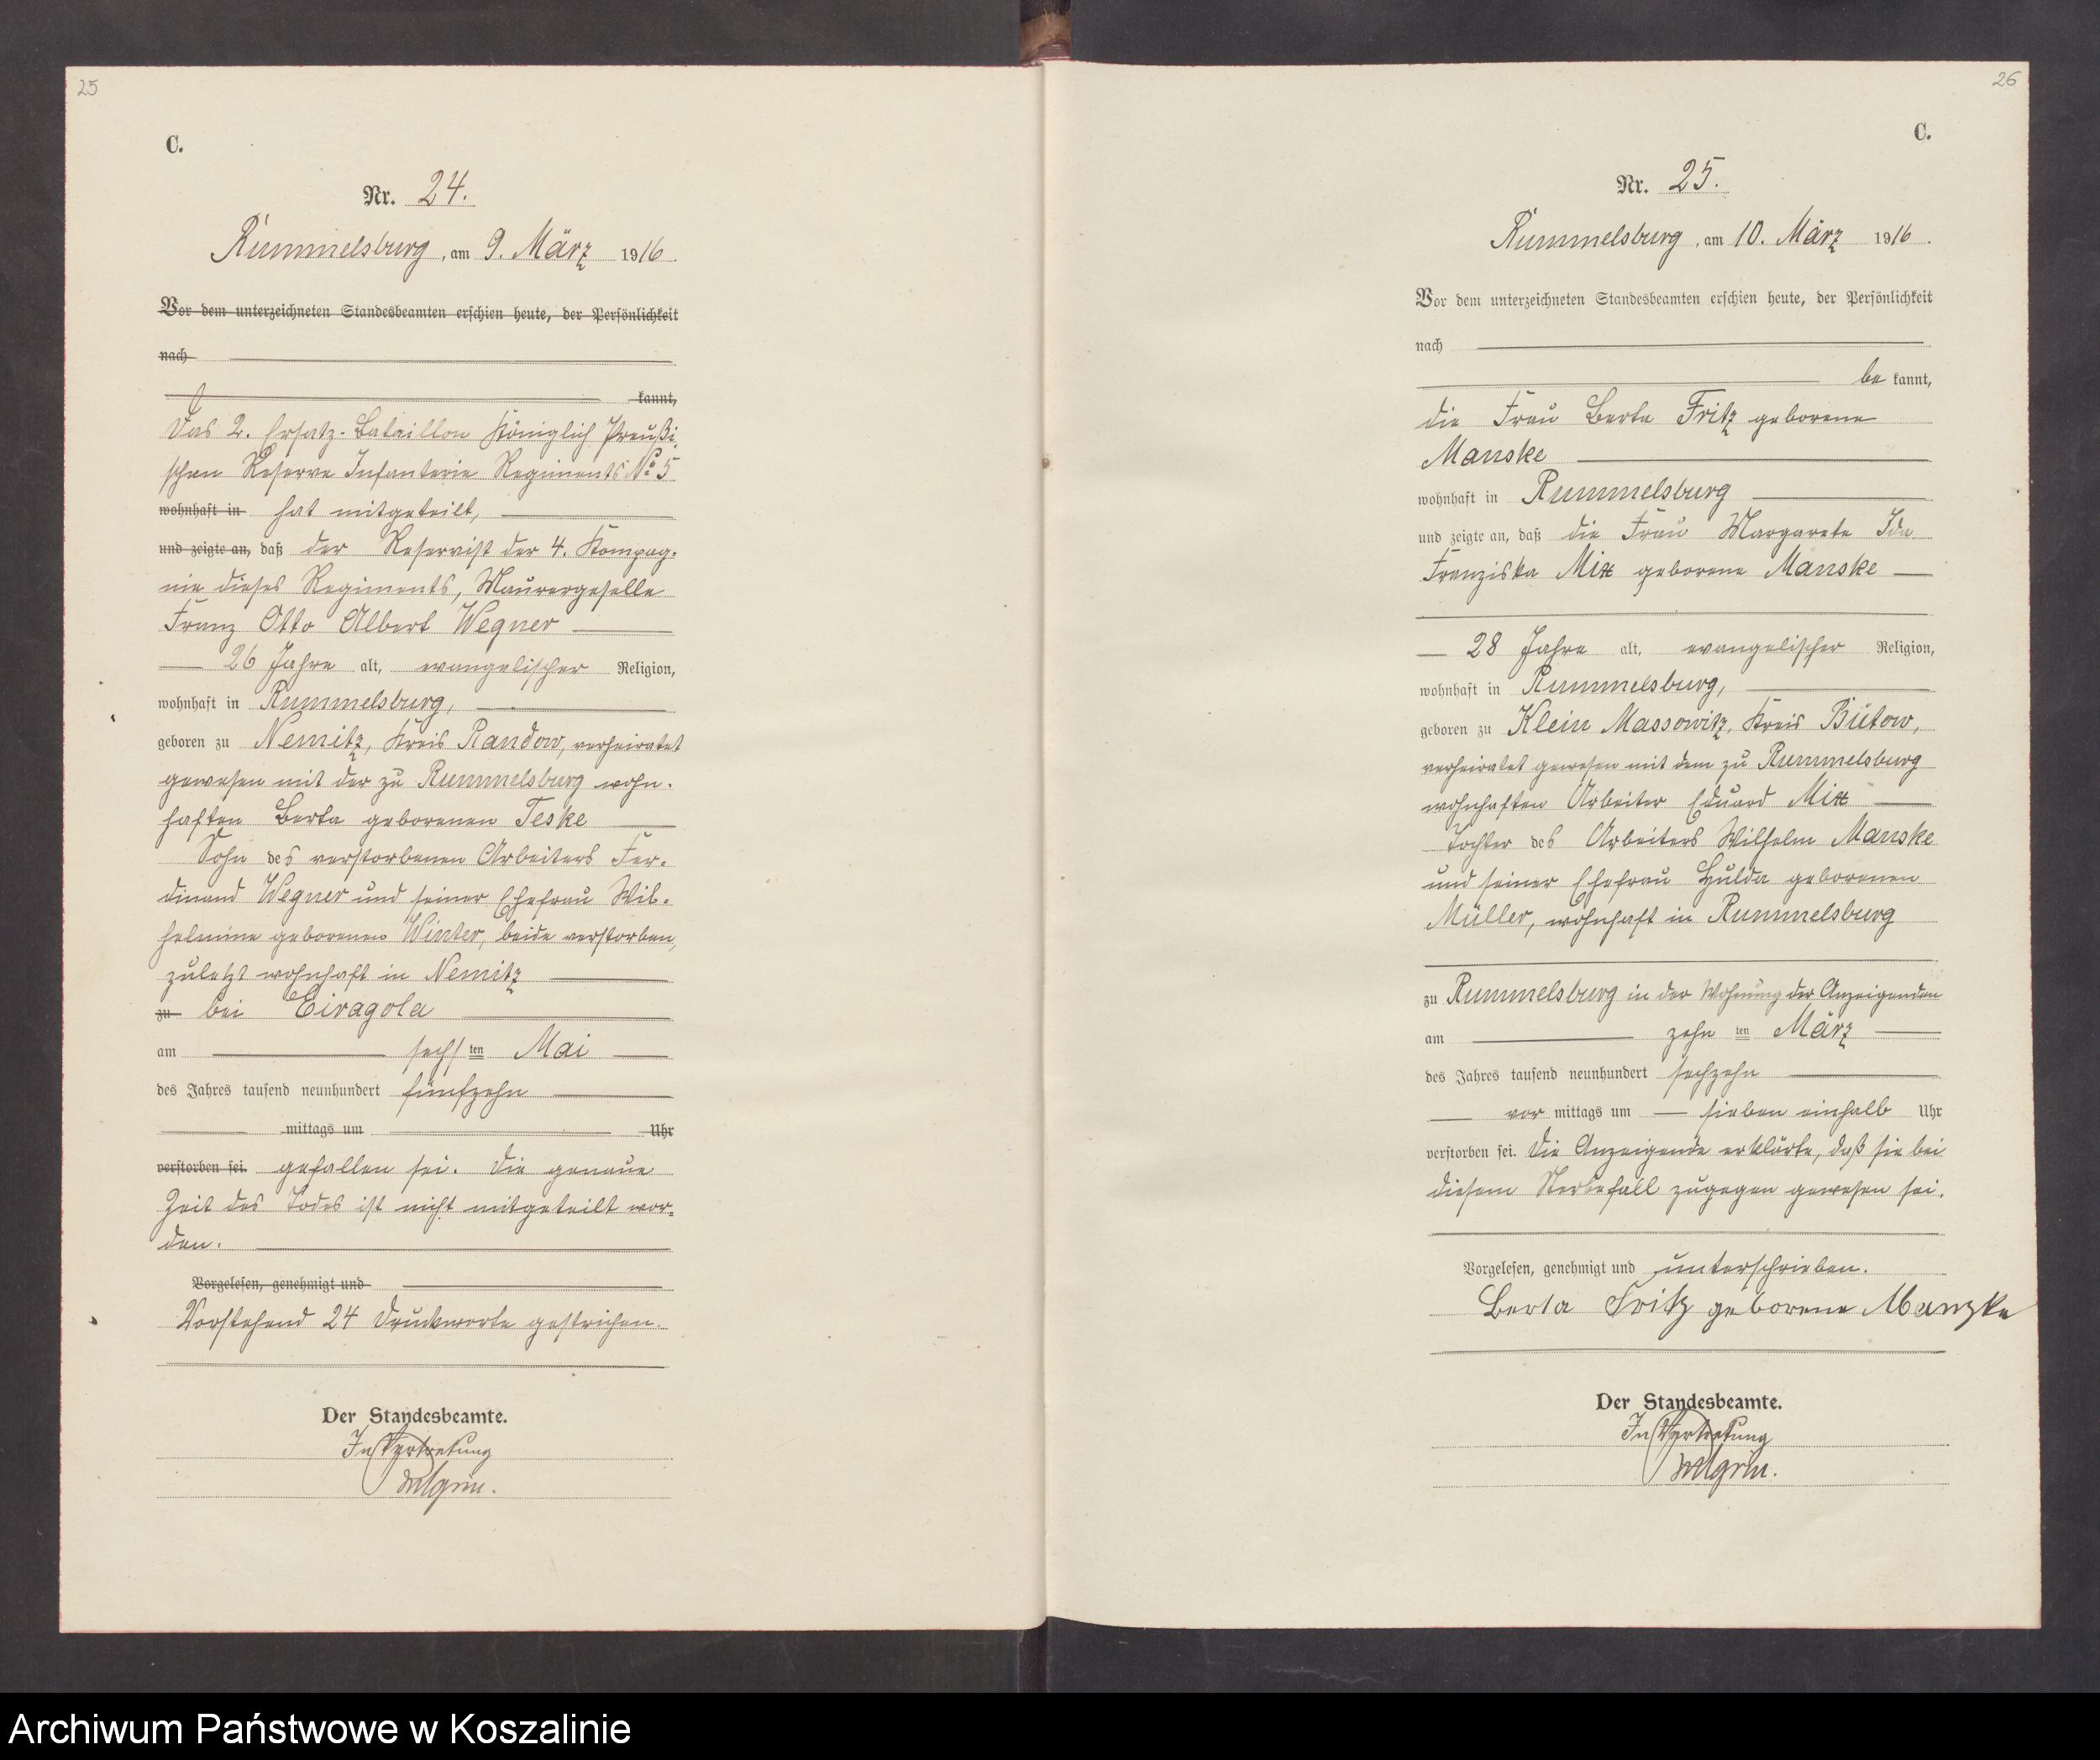 25
C.
Nr. 24.
Rummelsburg, am 9. März 1916.
Vor dem unterzeichneten Standesbeamten erschien heute, der Persönlichkeit
nach
kannt,
Das 2. Ersatz-Bataillon Königlich Preußi-
schen Reserve Infanterie Regiments No 5
wohnhaft in hat mitgeteilt,
und zeigte an, daß der Reservist der 4. Kompag-
nie dieses Regiments, Maurergeselle
Franz Otto Albert Wegner
26 Jahre alt, evangelischer Religion,
wohnhaft in Rummelsburg,
geboren zu Nemitz, Kreis Randow, verheiratet
gewesen mit der zu Rummelsburg wohn-
haften Berta geborenen Teske
Sohn des verstorbenen Arbeiters Fer-
dinand Wegner und seiner Ehefrau Wil-
helmine geborenen Winter, beide verstorben,
zuletzt wohnhaft in Nemitz
zu bei Eiragola
am sechsten Mai
des Jahres tausend neunhundert fünfzehn
mittags um Uhr
verstorben sei. gefallen sei. Die genaue
Zeit des Todes ist nicht mitgeteilt wor-
den.
Vorgelesen, genehmigt und
Vorstehend 24 Druckworte gestrichen.
Der Standesbeamte.
In Vertretung
26
C.
Nr. 25.
Rummelsburg, am 10. März 1916.
Vor dem unterzeichneten Standesbeamten erschien heute, der Persönlichkeit
nach
be kannt,
die Frau Berta Fritz geborene
Manske
wohnhaft in Rummelsburg
und zeigte an, daß die Frau Margarete Ida
Franziska Mix geborene Manske
28 Jahre alt, evangelischer Religion,
wohnhaft in Rummelsburg,
geboren zu Klein Massowitz, Kreis Bütow,
verheiratet gewesen mit dem zu Rummelsburg
wohnhaften Arbeiter Eduard Mix
Tochter des Arbeiters Wilhelm Manske
und seiner Ehefrau Hulda geborenen
Müller, wohnhaft in Rummelsburg
zu Rummelsburg in der Wohnung der Anzeigenden
am zehnten März
des Jahres tausend neunhundert sechzehn
vor mittags um sieben einhalb Uhr
verstorben sei. Die Anzeigende erklärte, daß sie bei
diesem Sterbefall zugegen gewesen sei.
Vorgelesen, genehmigt und unterschrieben.
Berta Fritz geborene Manzke
Der Standesbeamte.
In Vertretung
Archiwum Państwowe w Koszalinie